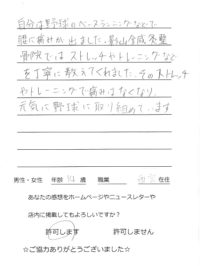 自分は野球のベースランニングなどで
腰に痛みが出ました。影山合成整
骨院ではストレッチやトレーニングなど
を丁寧に教えてくれました。そのストレッチ
やトレーニングで痛みはなくなり、
元気に野球に取り組めています
男性・女性　年齢　歳　職業　在住
あなたの感想をホームページやニュースレターや
店内に掲載してもよろしいですか？
許可します　許可しません
☆ご協力ありがとうございました☆